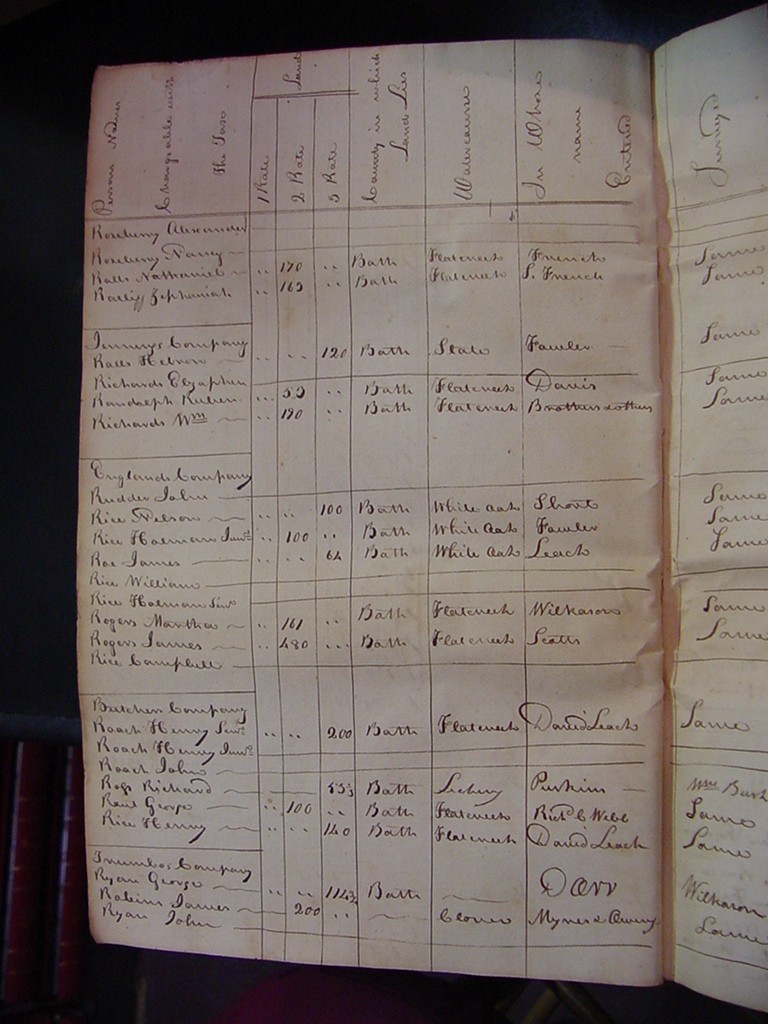 Persons Names Chargeable with The Tax | Land | 1 Rate | 2 Rate | 3 Rate | County in which Land Lies | Watercourse | In Whose name Entered | Survey
Roseberry Alexander
Roseberry Nancy — .. 170 .. Bath Flatcreek French Same
Ralls Nathaniel — .. 165 .. Bath Flatcreek S. French Same
Zephaniah
Jennings Company Same
Ralls Hebron — .. .. 120 Bath Slate Fowler —
Richards Same
Randolph Reuben ... 55 .. Bath Flatcreek Davis Same
Richards Wm — .. 190 .. Bath Flatcreek Brothers & others
Englands Company
Rudder John — Same
Rice Nelson — .. .. 100 Bath White oak Short Same
Rice Holeman Junr .. 100 .. Bath White oak Fowler Same
Roe James — .. .. 64 Bath White oak Leach
Rice William —
Rice Holeman Senr Same
Rogers Martha — .. 161 .. Bath Flatcreek Wilkason Same
Rogers James — .. 480 ... Bath Flatcreek Scotts
Rice Campbell —
Butchers Company
Roach Henry Senr .. .. 200 Bath Flatcreek David Leach Same
Roach Henry Junr
Roach John —
Richard — 533 Bath Perkins — Wm
George — .. 100 .. Bath Flatcreek Richd C Webb Same
Rice Henry — .. .. 140 Bath Flatcreek David Leach Same
Trumbos Company
Ryan George — .. .. Bath — Darr Wilkason
James — 200 .. — Clover Myners & Same
Ryan John —